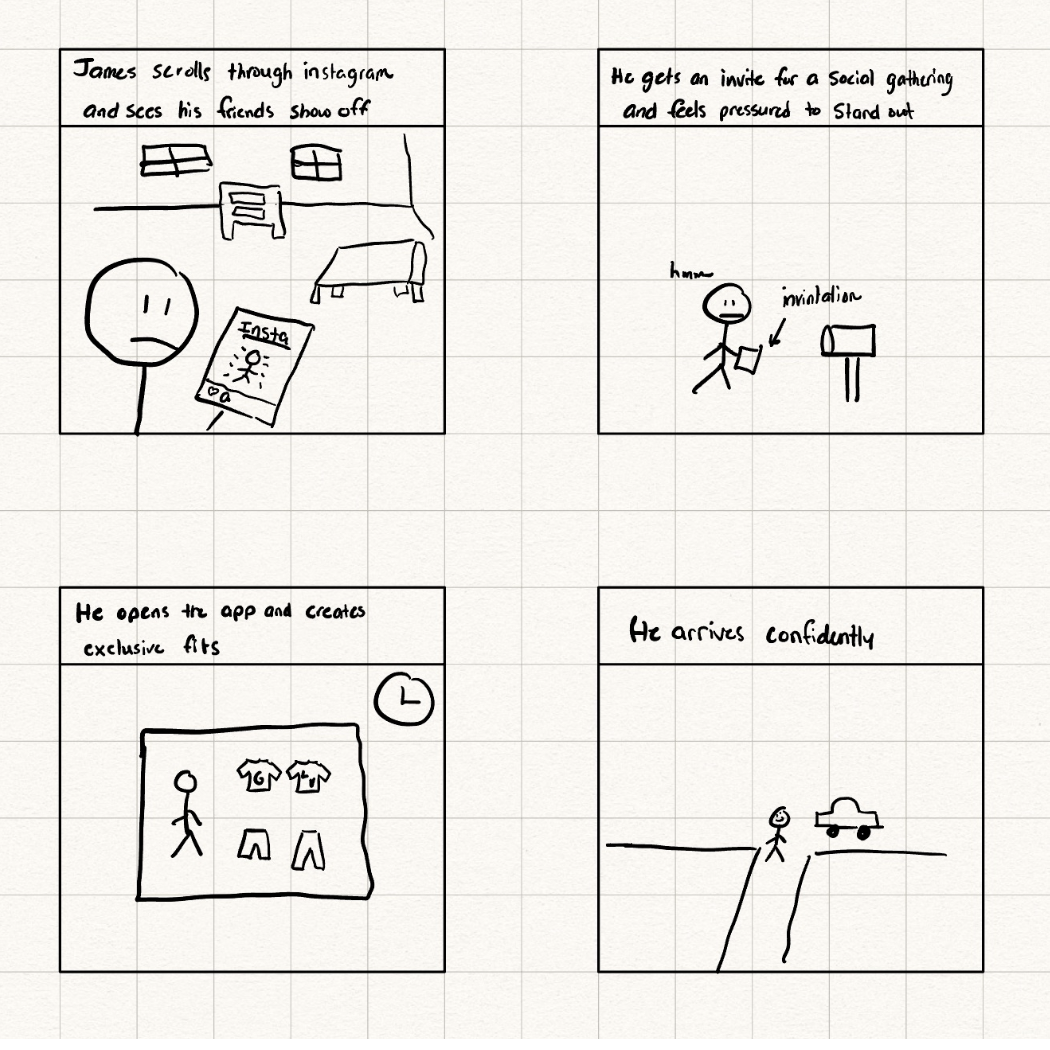 James scrolls through instagram
and sees his friends show off
Insta
a
He gets an invite for a social gathering
and feels pressured to Stand out
hmm
invintation
He opens the app and creates
exclusive fits
G
LV
He arrives confidently